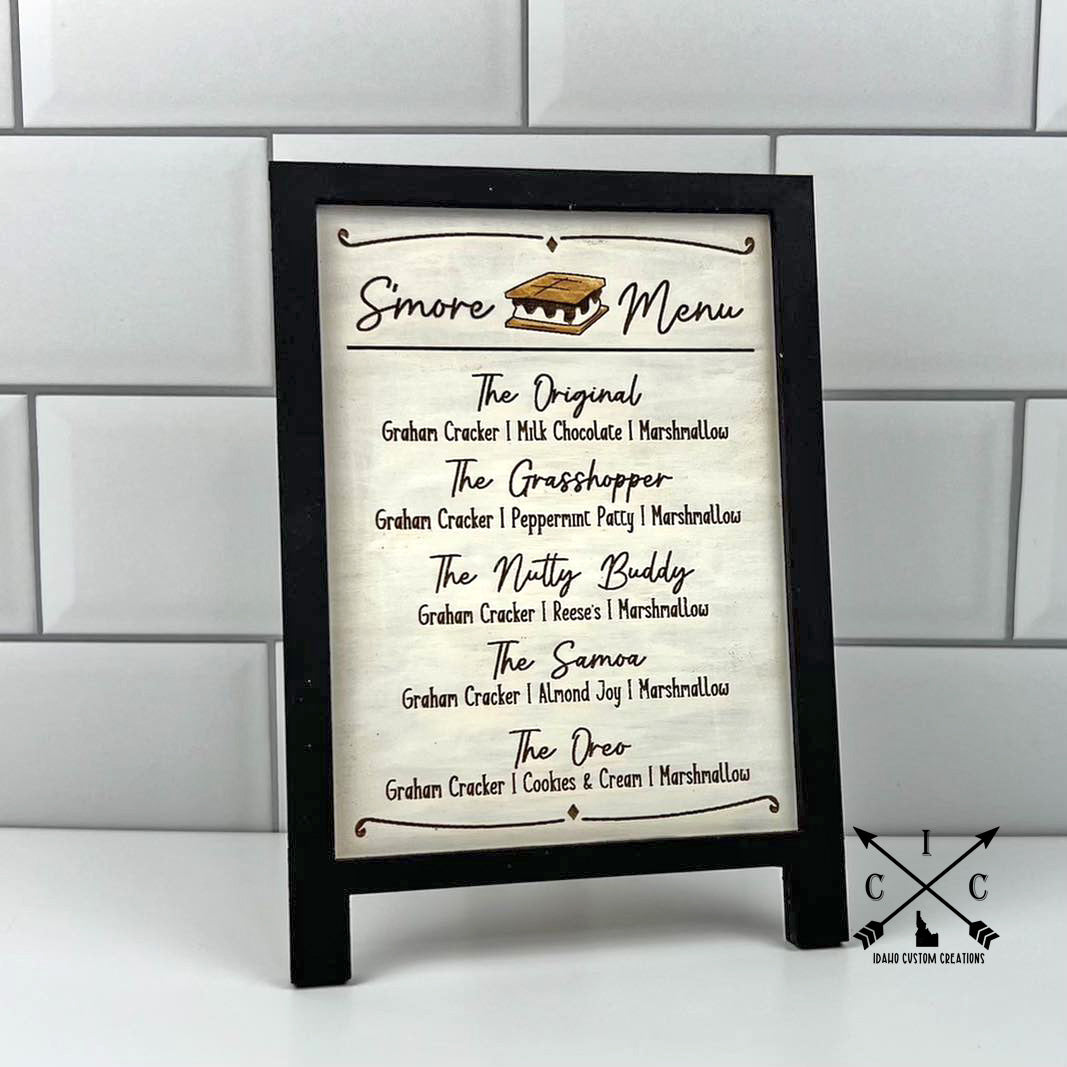 S'more Menu
The Original
Graham Cracker | Milk Chocolate | Marshmallow
The Grasshopper
Graham Cracker | Peppermint Patty | Marshmallow
The Nutty Buddy
Graham Cracker | Reese's | Marshmallow
The Samoa
Graham Cracker | Almond Joy | Marshmallow
The Oreo
Graham Cracker | Cookies & Cream | Marshmallow
I
C C
IDAHO CUSTOM CREATIONS